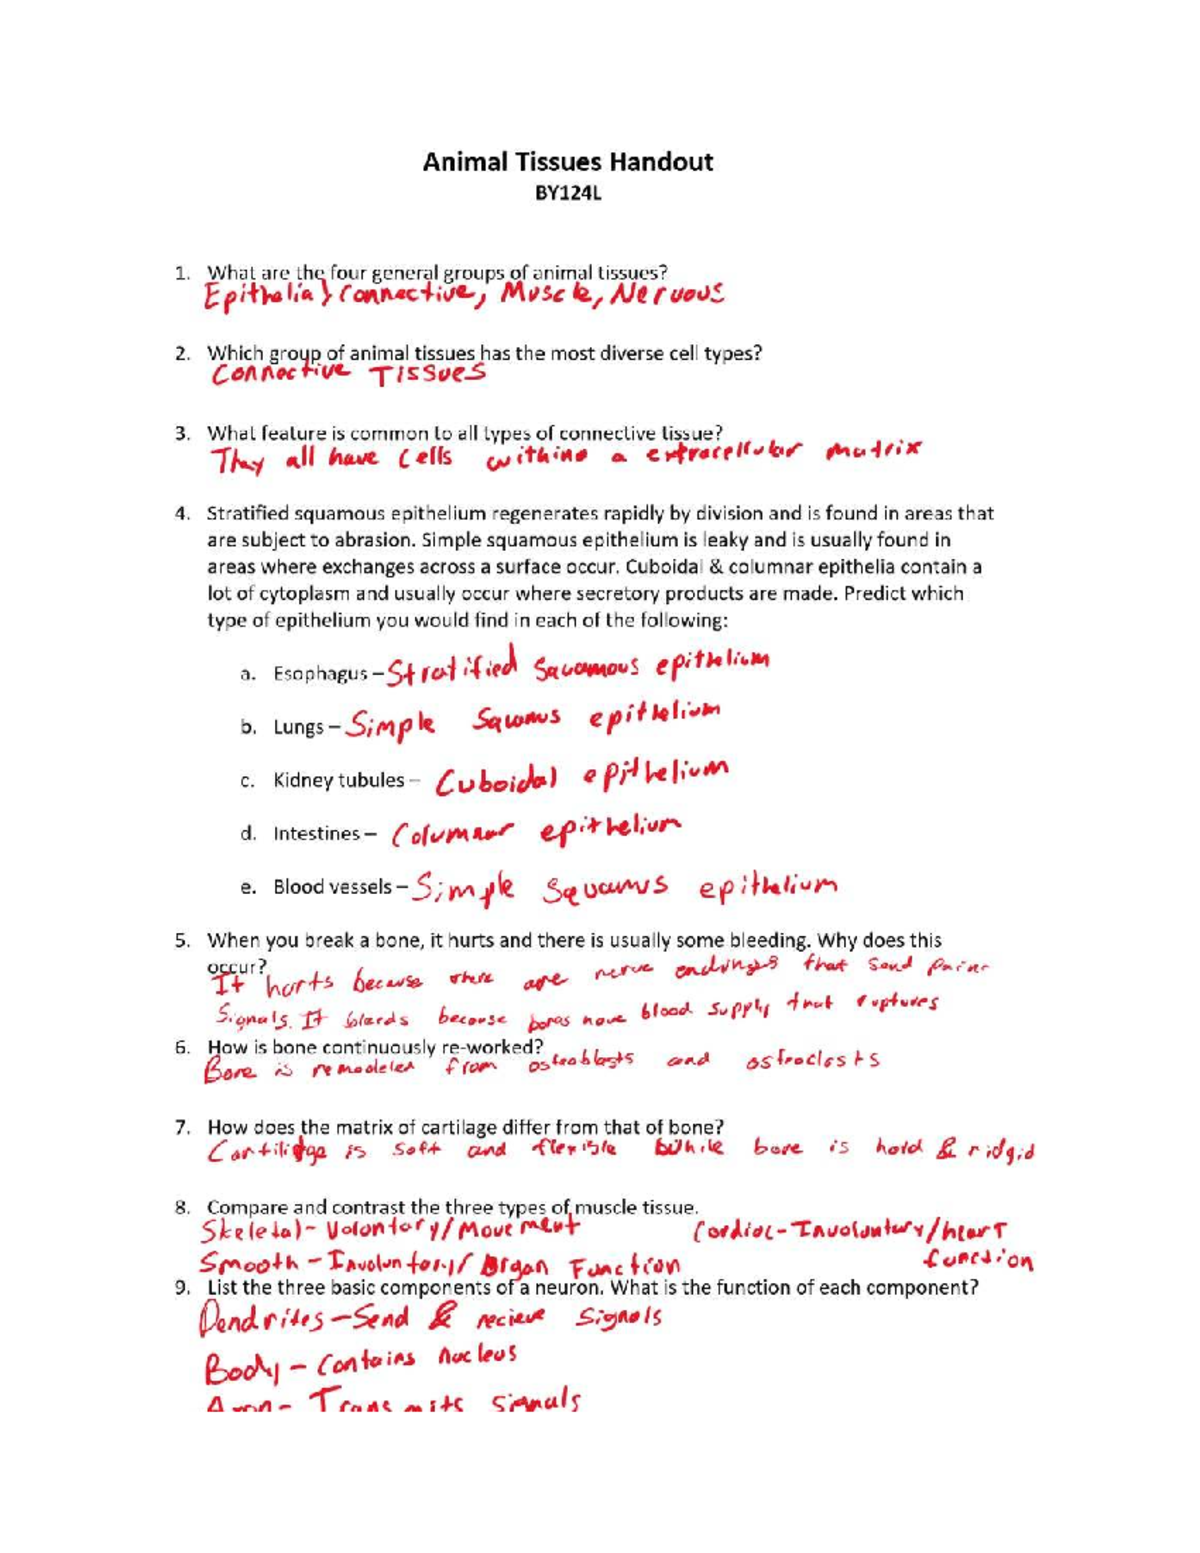 Animal Tissues Handout
BY124L
1. What are the four general groups of animal tissues?
Epithalia, Connective, Muscle, Nervous
2. Which group of animal tissues has the most diverse cell types?
Connective Tissues
3. What feature is common to all types of connective tissue?
They all have cells withing a extracellular matrix
4. Stratified squamous epithelium regenerates rapidly by division and is found in areas that
are subject to abrasion. Simple squamous epithelium is leaky and is usually found in
areas where exchanges across a surface occur. Cuboidal & columnar epithelia contain a
lot of cytoplasm and usually occur where secretory products are made. Predict which
type of epithelium you would find in each of the following:
a. Esophagus – Stratified Squamous epithelium
b. Lungs – Simple Squamus epithelium
c. Kidney tubules – Cuboidal epithelium
d. Intestines – Columnar epithelium
e. Blood vessels – Simple Squamus epithelium
5. When you break a bone, it hurts and there is usually some bleeding. Why does this
occur?
It hurts because there are nerve endings that send
Signals. It bleeds because bones have blood supply that ruptures
6. How is bone continuously re-worked?
Bone is remodeled from osteoblasts and ostroclasts
7. How does the matrix of cartilage differ from that of bone?
Cartilidge is soft and flexible while bone is hard & ridgid
8. Compare and contrast the three types of muscle tissue.
Skeletal - Volontory/Movement Cardiac - Involuntary/heart
function
Smooth - Involuntory/ Organ Function
9. List the three basic components of a neuron. What is the function of each component?
Dendrites - Send & recieve Signals
Body - Contains nucleus
Axon - Transmits signals